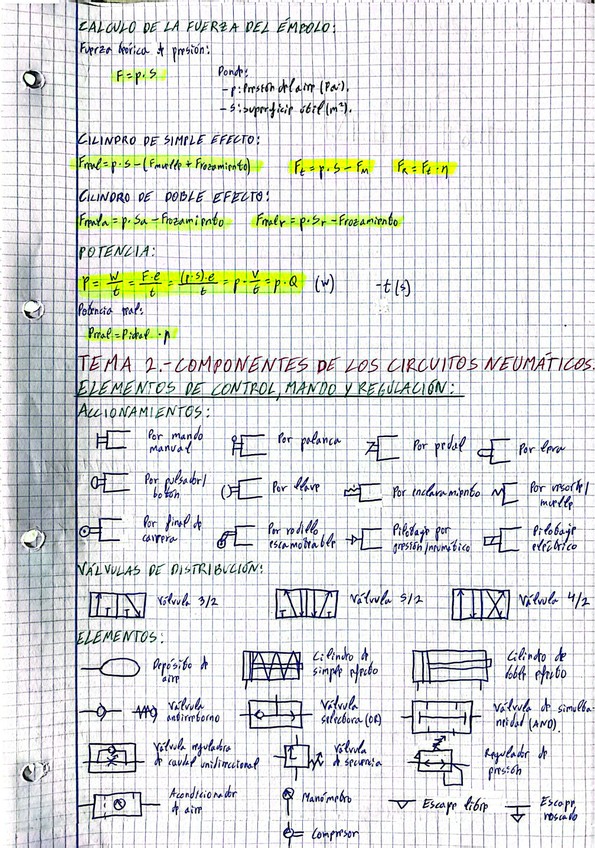 CALCULO DE LA FUERZA DEL ÉMBOLO:
Fuerza teórica y presión:
F = p · S
Donde:
- p: Presión del aire (Pa).
- S: superficie útil (m²).
CILINDRO DE SIMPLE EFECTO:
Freal = p · S - (Fmuelle + Frozamiento)
Ft = p · S - FM
FR = Ft · η
CILINDRO DE DOBLE EFECTO:
Freala = p · Sa - Frozamiento
Frealr = p · Sr - Frozamiento
POTENCIA:
P = W/t = F·e/t = (p·S)·e/t = p · V/t = p · Q (W)
- t (s)
Potencia real:
Preal = Pideal ·
TEMA 2.- COMPONENTES DE LOS CIRCUITOS NEUMÁTICOS.
ELEMENTOS DE CONTROL, MANDO Y REGULACIÓN:
ACCIONAMIENTOS:
Por mando manual
Por palanca
Por pedal
Por leva
Por pulsador/ botón
Por llave
Por enclavamiento
Por resorte/ muelle
Por final de carrera
Por rodillo escamoteable
Pilotaje por presión/neumático
Pilotaje eléctrico
VÁLVULAS DE DISTRIBUCIÓN:
Válvula 3/2
Válvula 5/2
Válvula 4/2
ELEMENTOS:
Depósito de aire
Cilindro de simple efecto
Cilindro de doble efecto
Válvula antirretorno
Válvula selectora (OR)
Válvula de simultaneidad (AND).
Válvula reguladora de caudal unidireccional
Válvula de secuencia
Regulador de presión
Acondicionador de aire
Manómetro
Escape libre
Escape roscado
Compresor